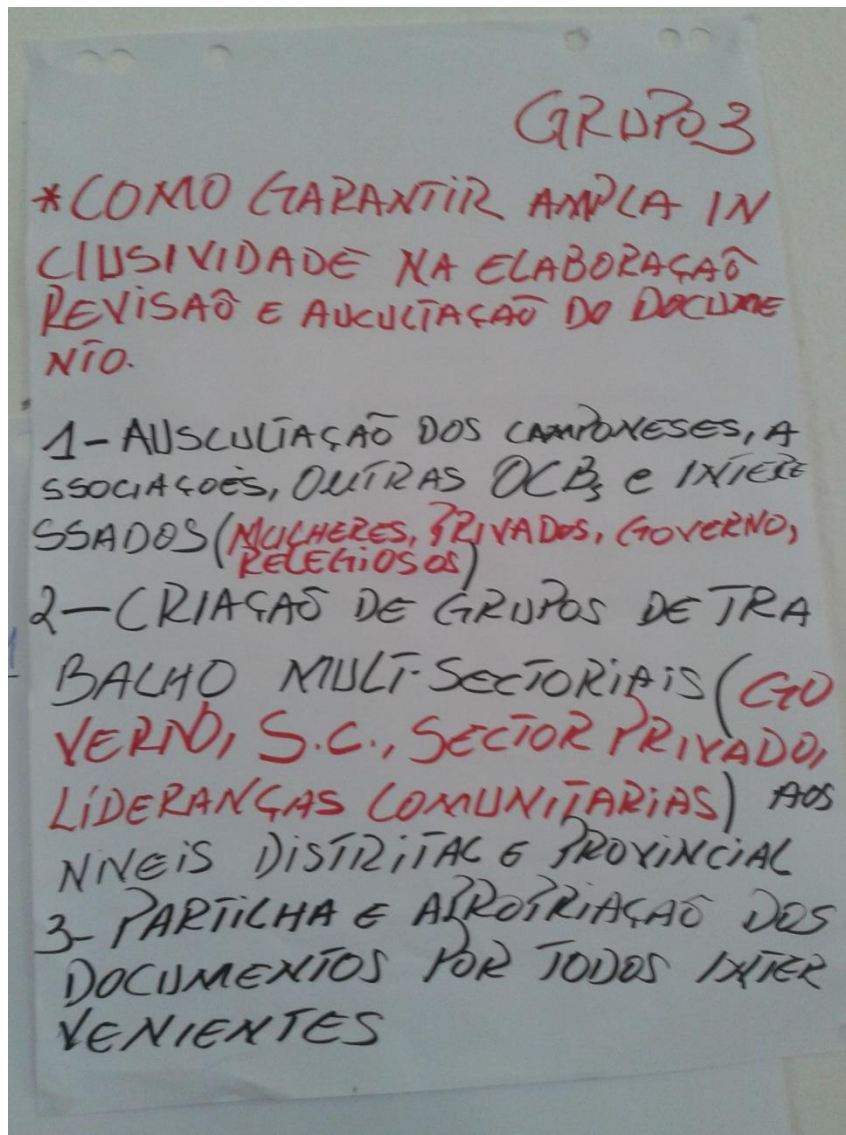 GRUPO 3
* COMO GARANTIR AMPLA IN
CLUSIVIDADE NA ELABORAÇAÕ
REVISAÕ E AUCULTAÇAÕ DO DOCUME
NTO.
1- AUSCULTAÇAÕ DOS CAMPONESES, A
SSOCIAÇOES, OUTRAS OCBs e INTERE
SSADOS (MULHERES, PRIVADOS, GOVERNO,
RELEGIOSOS)
2- CRIAÇAÕ DE GRUPOS DE TRA
BALHO MULTI-SECTORIAIS (GO
VERNO, S.C., SECTOR PRIVADO,
LIDERANÇAS COMUNITARIAS) AOS
NIVEIS DISTRITAL E PROVINCIAL
3- PARTILHA E APROPRIAÇAÕ DOS
DOCUMENTOS POR TODOS INTER
VENIENTES